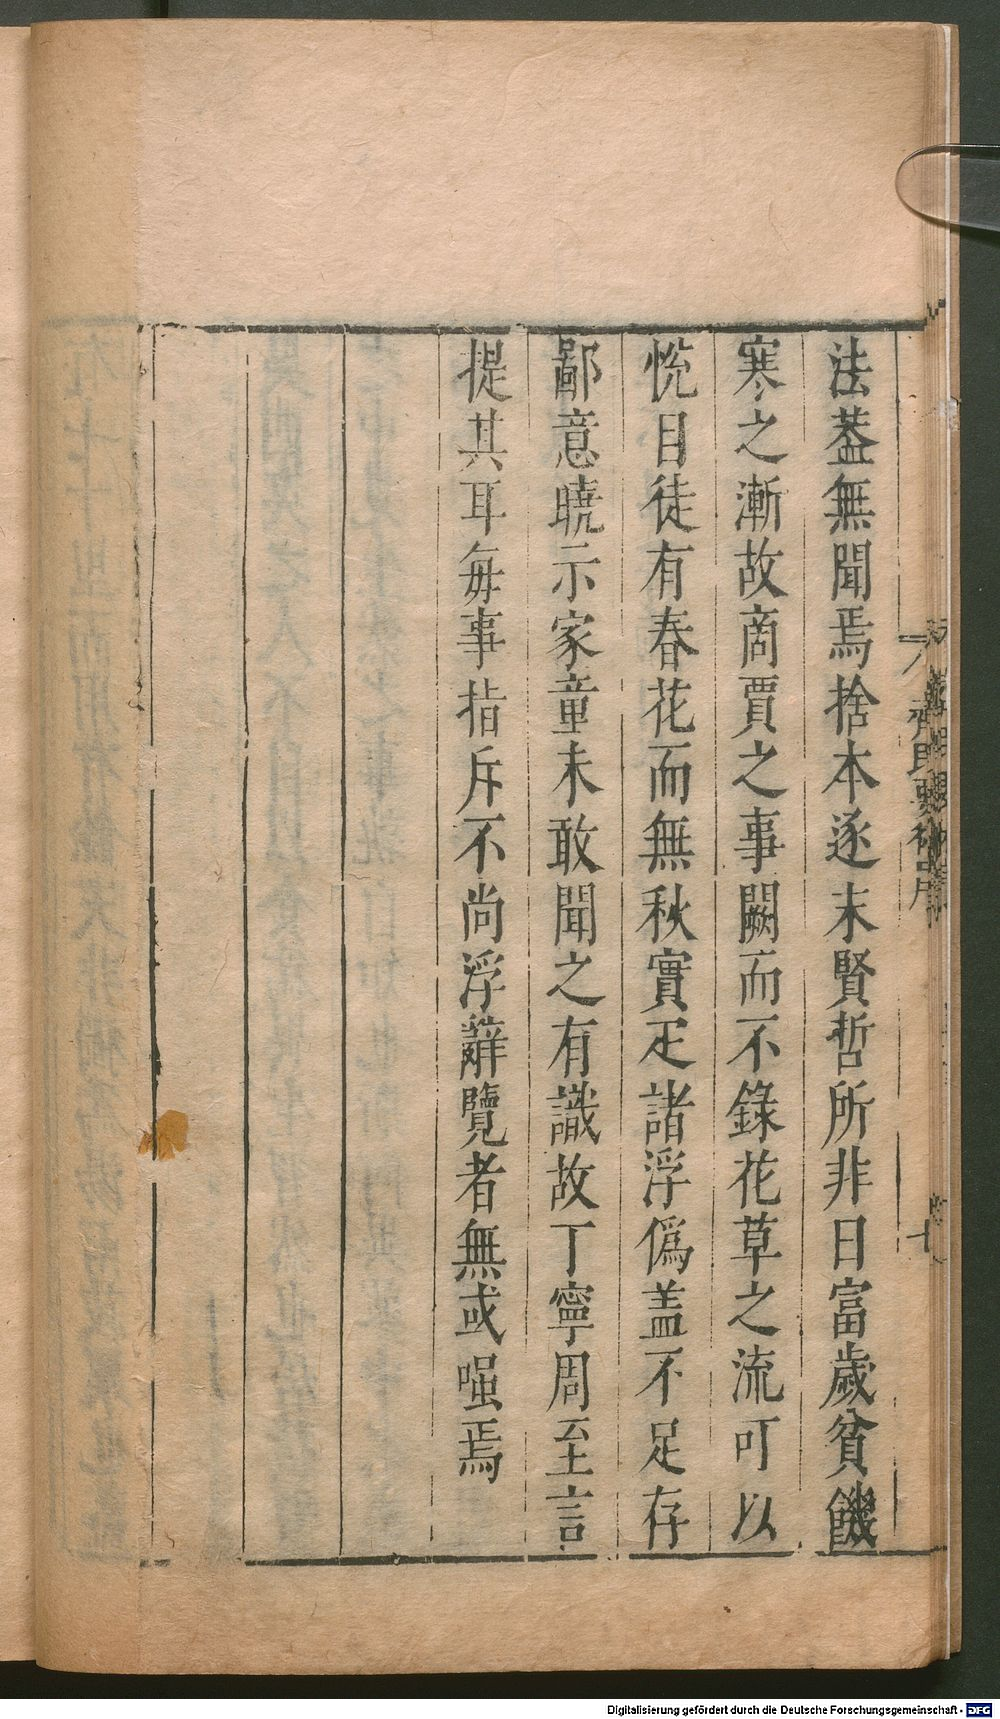 法蓋無聞焉捨本逐末賢哲所非日富歲貧饑
寒之漸故商賈之事闕而不錄花草之流可以
悅目徒有春花而無秋實疋諸浮偽盖不足存
鄙意曉示家童未敢聞之有識故丁寧周至言
提其耳每事指斥不尚浮辭覽者無或嗤焉
Digitalisierung gefördert durch die Deutsche Forschungsgemeinschaft - DFG